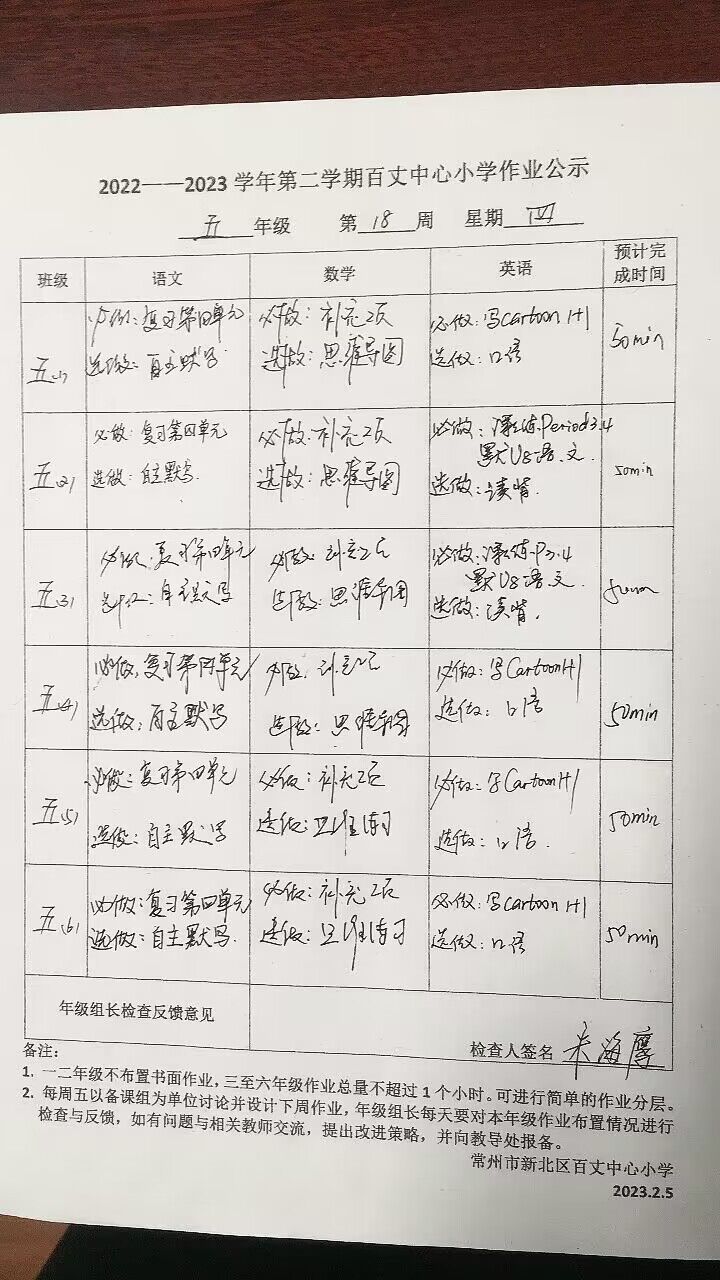 2022——2023 学年第二学期百丈中心小学作业公示
五 年级 第 18 周 星期 四
班级 语文 数学 英语 预计完成时间
五(1)
必做:复习第四单元
选做:自主默写
必做:补充2页
选做:思维导图
必做:写cartoon
选做:口语
50min
五(2)
必做:复习第四单元
选做:自主默写
必做:补充2页
选做:思维导图
必做:Period3.4
默U8语.文
选做:读背.
50min
五(3)
必做:复习第四单元
选做:自主默写
必做:补充2页
选做:思维导图
必做:P3.4
默U8语.文
选做:读背.
五(4)
必做:复习第四单元
选做:自主默写
必做:补充2页
选做:思维导图
必做:写Cartoon
选做:口语
50min
五(5)
必做:复习第四单元
选做:自主默写
必做:补充2页
选做:
必做:写Cartoon
选做:口语.
50min
五(6)
必做:复习第四单元
选做:自主默写.
必做:补充2页
选做:
必做:写cartoon
选做:口语
50min
年级组长检查反馈意见
检查人签名 朱海鹰
备注:
1. 一二年级不布置书面作业,三至六年级作业总量不超过 1 个小时。可进行简单的作业分层。
2. 每周五以备课组为单位讨论并设计下周作业,年级组长每天要对本年级作业布置情况进行
检查与反馈,如有问题与相关教师交流,提出改进策略,并向教导处报备。
常州市新北区百丈中心小学
2023.2.5